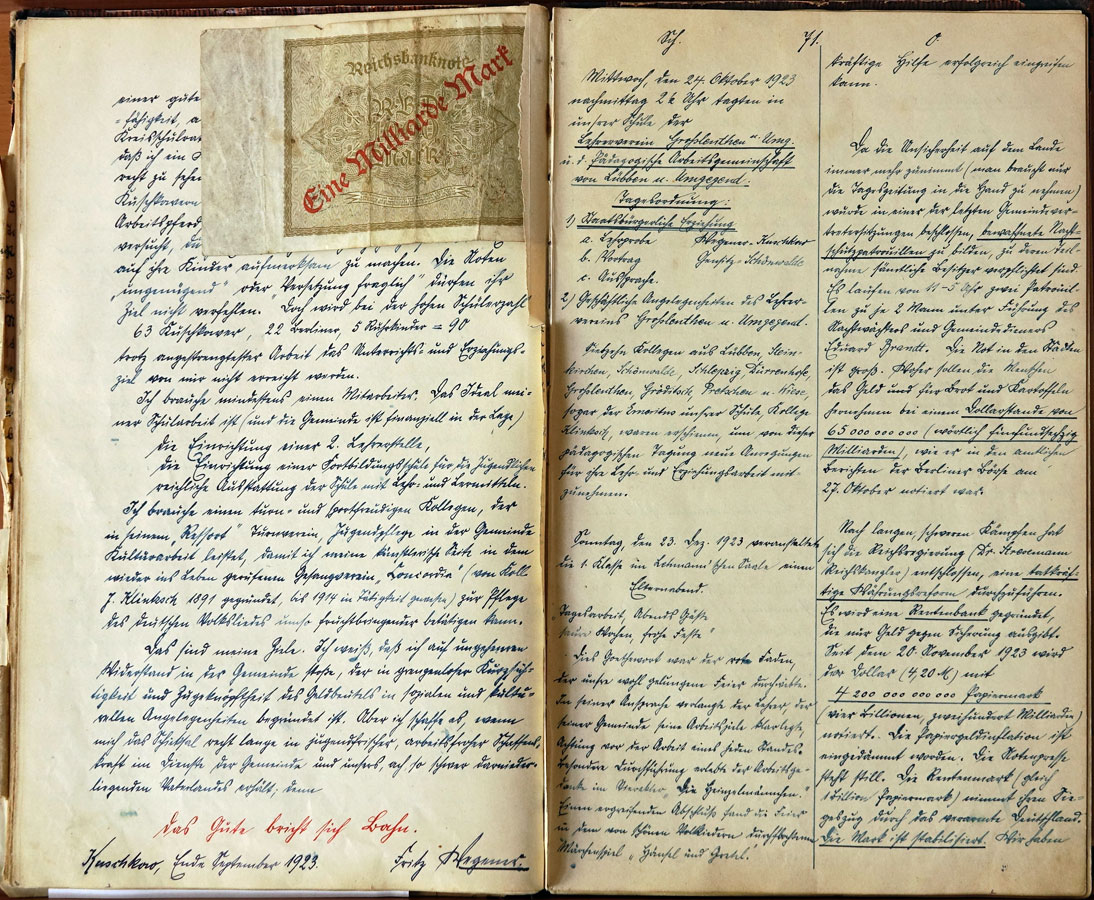 einer gute
-fähigkeit, a
Kreisschulra
daß ich ein
recht zu sehe
Kuschkowern
Arbeitspferd
versucht, du
Reichsbanknote
Eine Milliarde Mark
auf ihre Kinder aufmerksam zu machen. Die Noten
„ungenügend" oder „Versetzung fraglich" dürfen ihr
Ziel nicht verfehlen. Doch wird bei der hohen Schülerzahl
63 Kuschkower, 22 Berliner, 5 Ruhrkinder = 90
trotz angestrengtester Arbeit das Unterrichts- und Erziehungs-
ziel von mir nicht erreicht werden.
Ich brauche mindestens einen Mitarbeiter. Das Ideal mei-
ner Schularbeit ist (und die Gemeinde ist finanziell in der Lage)
die Einrichtung einer 2. Lehrerstelle,
die Einrichtung einer Fortbildungsschule für die Jugendlichen
reichliche Ausstattung der Schule mit Lehr- und Lernmitteln.
Ich brauche einen turn- und sportfreudigen Kollegen, der
in seinem „Ressort" Turnverein, Jugendpflege in der Gemeinde
Kulturarbeit leistet, damit ich meine künstlerische Seite in dem
wieder ins Leben gerufenen Gesangverein „Concordia" (von Koll.
J. Klinkisch 1891 gegründet, bis 1914 in Tätigkeit gewesen) zur Pflege
des deutschen Volksliedes umso fruchtbringender betätigen kann.
Das sind meine Ziele. Ich weiß, daß ich auf ungeheuren
Widerstand in der Gemeinde stoße, der in grenzenloser Kurzsich-
tigkeit und Zugeknöpftheit des Geldbeutels in sozialen und kultu-
rellen Angelegenheiten begründet ist. Aber ich schaffe es, wenn
mich das Schicksal recht lange in jugendfrischer, arbeitsfroher Schaffens-
kraft im Dienste der Gemeinde und unsers, ach so schwer darnieder-
liegenden Vaterlandes erhält, denn
das Gute bricht sich Bahn.
Kuschkow, Ende September 1923. Fritz Wegener.
Sch. 71. O.
Mittwoch, den 24. Oktober 1923
nachmittag 2 Uhr tagten in
unsrer Schule der
Lehrerverein Großleuthen u. Umg.
u. d. Pädagogische Arbeitsgemeinschaft
von Lübben u. Umgegend.
Tagesordnung:
1) Staatsbürgerliche Erziehung
a. Lehrprobe Wegener-Kuschkow
b. Vortrag Gensitz-Schönwalde
c. Aussprache.
2) Geschäftliche Angelegenheiten des Lehrer-
vereins Großleuthen u. Umgegend.
Vierzehn Kollegen aus Lübben, Stein-
kirchen, Schönwalde, Schlepzig Dürrenhofe,
Großleuthen, Gröditsch, Pretschen u. Wiese,
sogar der Emeritus unsrer Schule, Kollege
Klinkisch, waren erschienen, um von dieser
pädagogischen Tagung neue Anregungen
für ihre Lehr- und Erziehungsarbeit mit-
zunehmen.
Sonntag, den 23. Dez. 1923 veranstaltete
die 1. Klasse im Lehmann'schen Saale einen
Elternabend.
„Tages Arbeit, Abends Gäste
saure Wochen, frohe Feste"
Dies Goethewort war der rote Faden,
der unsre wohl gelungene Feier durchwebte.
In seiner Ansprache verlangte der Lehrer, der
seiner Gemeinde seine Arbeitsziele klarlegte,
Achtung vor der Arbeit eines jeden Standes.
Besondere Durchführung erlebte der Arbeitsge-
danke im Vierakter „Die Heinzelmännchen."
Einen ergreifenden Abschluß fand die Feier
in dem von schönen Volksliedern durchflochtenen
Märchenspiel „Hänsel und Gretel."
kräftige Hilfe erfolgreich eingreifen
kann.
Da die Unsicherheit auf dem Lande
immer mehr zunimmt (man braucht nur
die Tageszeitung in die Hand zu nehmen)
wurde in einer der letzten Gemeindever-
tretersitzungen beschlossen, bewaffnete Nacht-
schutzpatrouillen zu bilden, zu deren Teil-
nahme sämtliche Besitzer verpflichtet sind.
Es laufen von 11-5 Uhr zwei Patrouil-
len zu je 2 Mann unter Führung des
Nachtwächters und Gemeindedieners
Eduard Brandt. Die Not in den Städten
ist groß. Woher sollen die Menschen
das Geld und für Brot und Kartoffeln
hernehmen bei einem Dollarstande von
65 000 000 000 (wörtlich Fünfundsechzig
Milliarden), wie er in den amtlichen
Berichten der Berliner Börse am
27. Oktober notiert war.
Nach langen schweren Kämpfen hat
sich die Reichsregierung (Dr. Stresemann
Reichskanzler) entschlossen, eine tatkräf-
tige Währungsreform durchzuführen.
Es wird eine Rentenbank gegründet,
die nur Geld gegen Sicherung ausgibt.
Seit dem 20. November 1923 wird
der Dollar (4,20 M) mit
4 200 000 000 000 Papiermark
(vier Billionen, zweihundert Milliarden)
notiert. Die Papiergeldinflation ist
eingedämmt worden. Die Notenpresse
steht still. Die Rentenmark (gleich
1 Billion Papiermark) nimmt ihren Sie-
geszug durch das verarmte Deutschland.
Die Mark ist stabilisiert. Wir haben